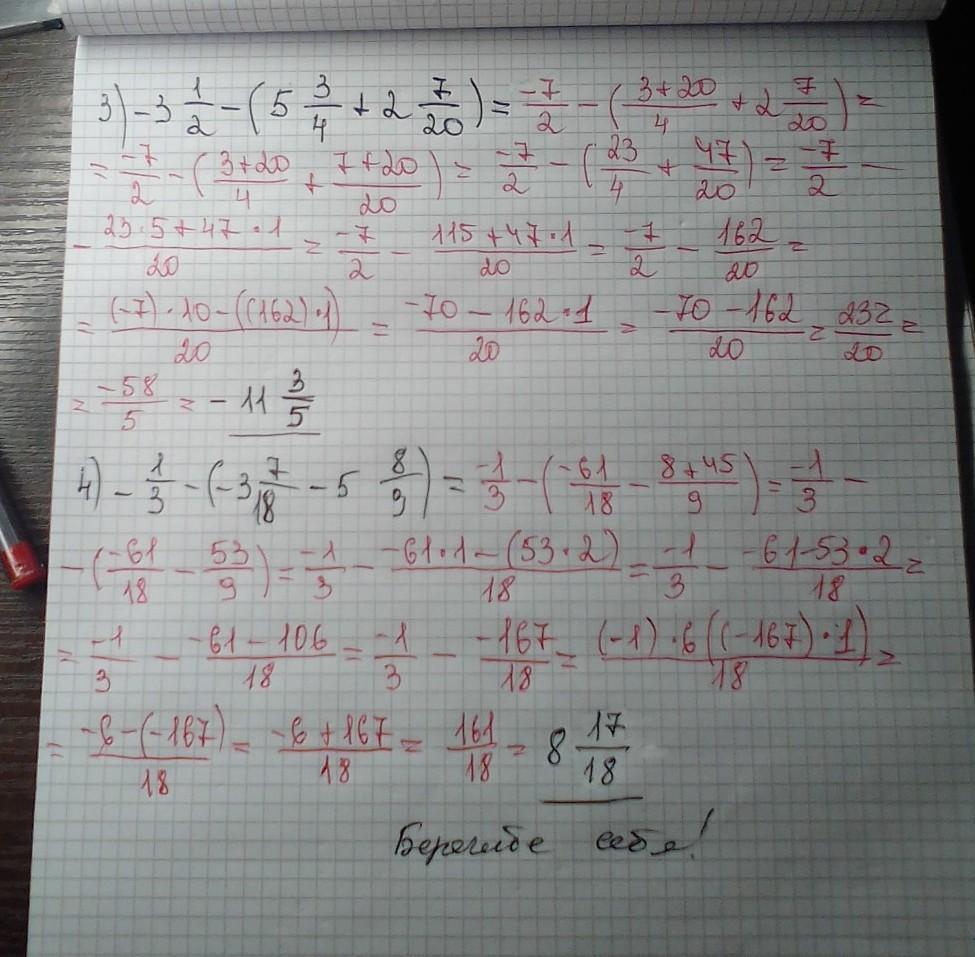 3) -3 1/2 - (5 3/4 + 2 7/20) = -7/2 - (3+20/4 + 2 7/20) =
= -7/2 - (3+20/4 + 7+20/20) = -7/2 - (23/4 + 47/20) = -7/2 -
- 23·5+47·1/20 = -7/2 - 115+47·1/20 = -7/2 - 162/20 =
= (-7)·10-((162)·1)/20 = -70-162·1/20 = -70-162/20 = 232/20 =
= -58/5 = -11 3/5
4) - 1/3 - (-3 7/18 - 5 8/9) = -1/3 - (-61/18 - 8+45/9) = -1/3 -
- (-61/18 - 53/9) = -1/3 - -61·1-(53·2)/18 = -1/3 - -61-53·2/18 =
= -1/3 - -61-106/18 = -1/3 - -167/18 = (-1)·6((-167)·1)/18 =
= -6-(-167)/18 = -6+167/18 = 161/18 = 8 17/18
Берегите себя!